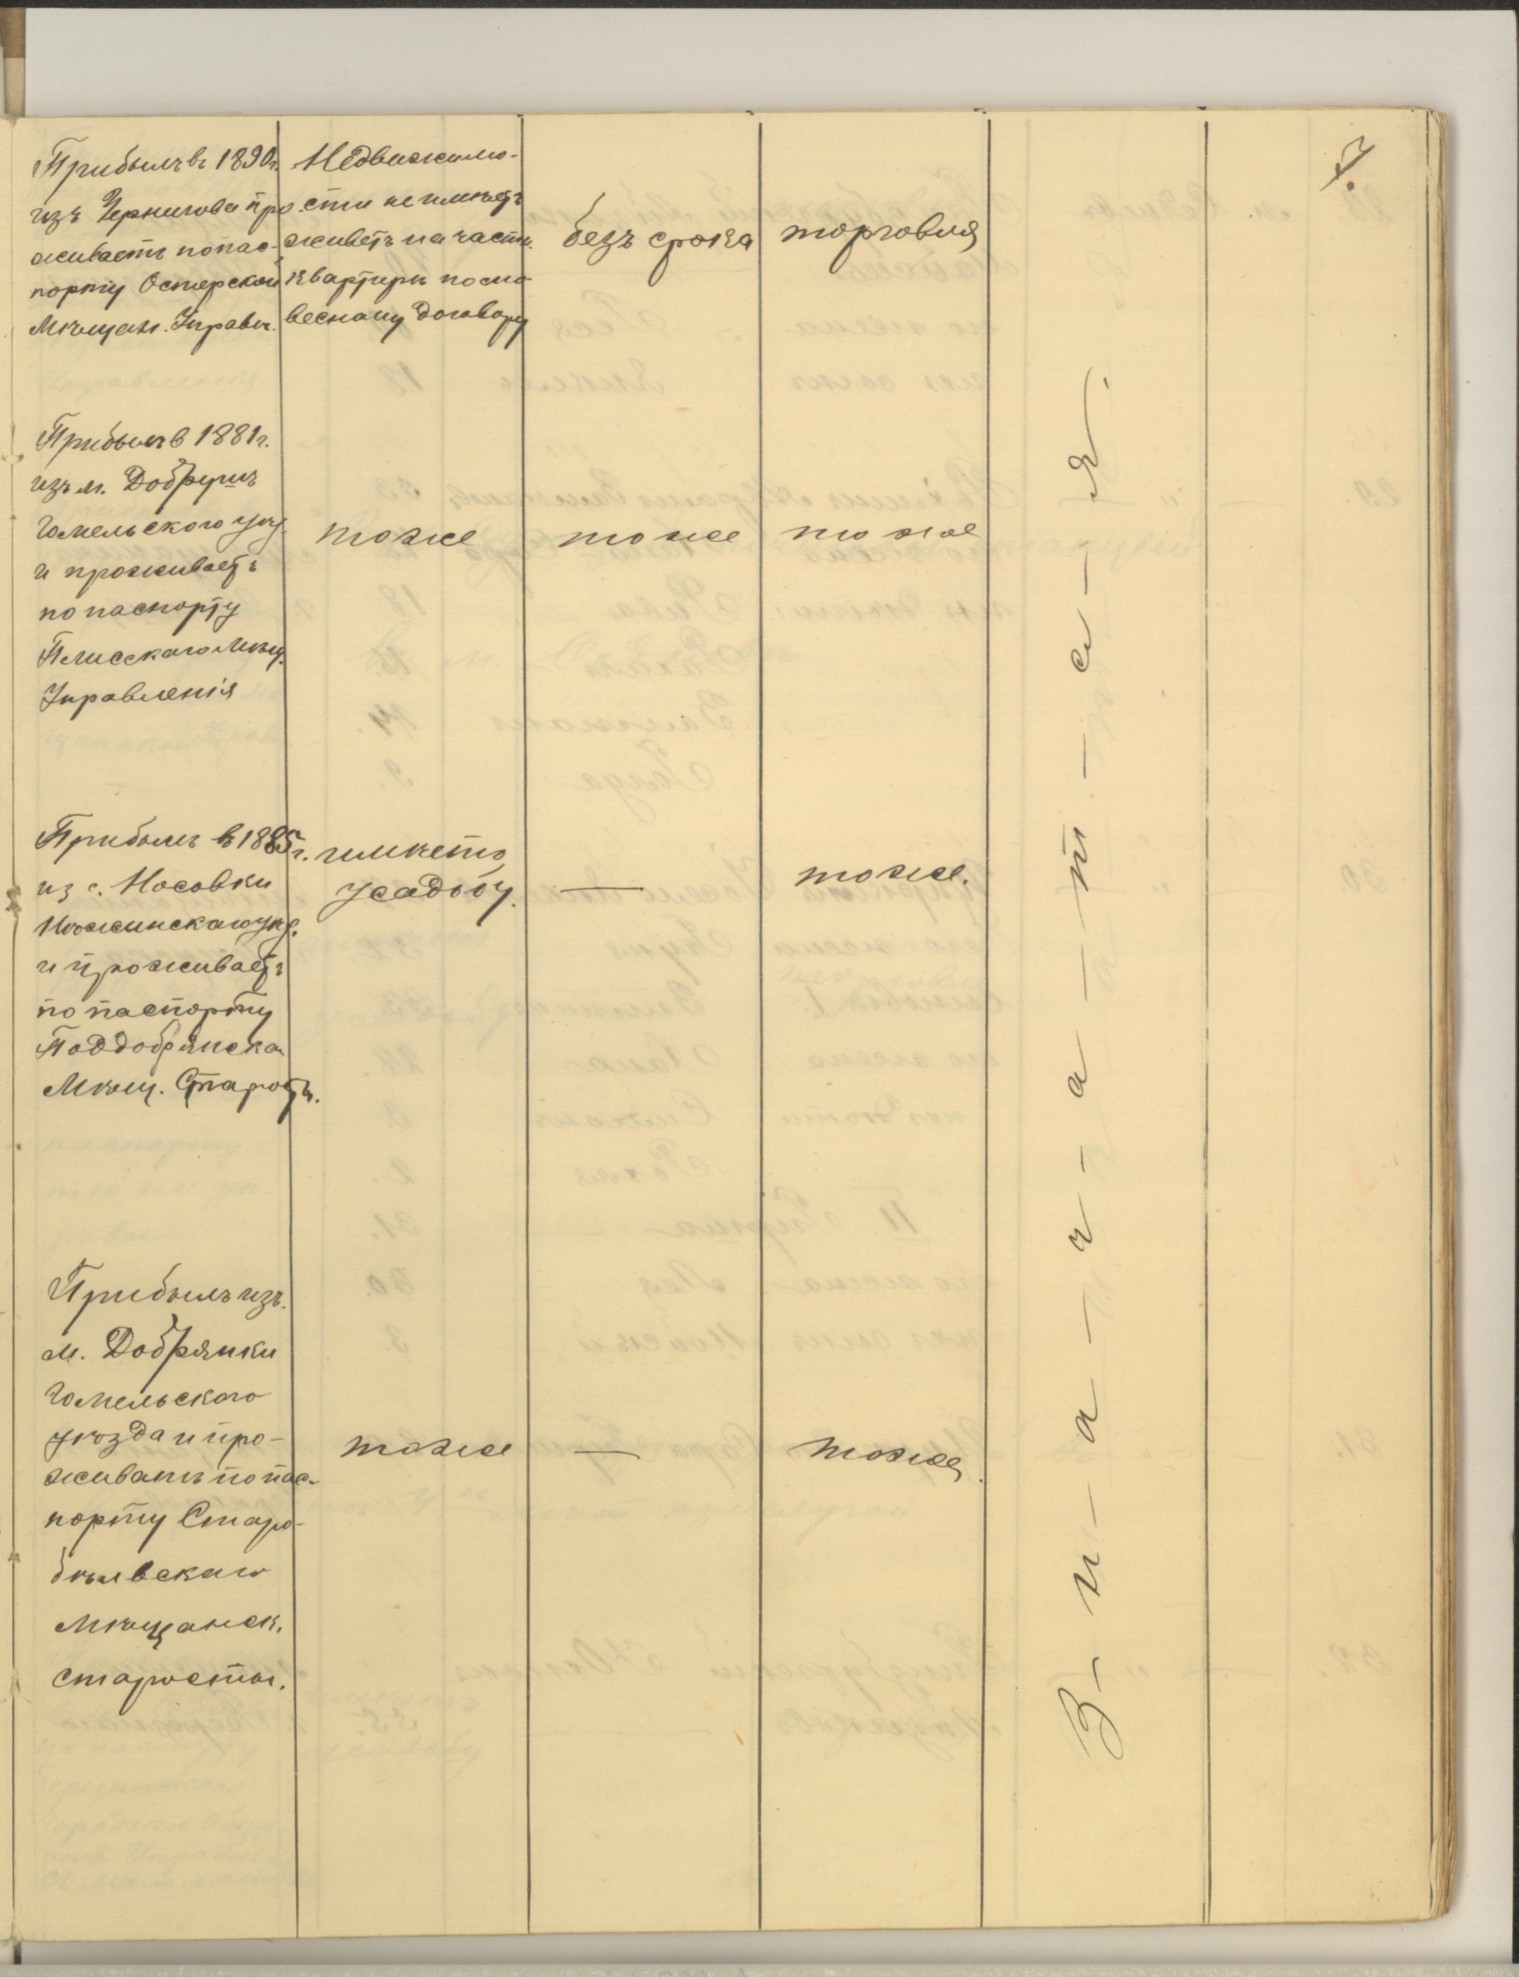 7.
Прибылъ въ 1890г.
изъ Чернигова про
живаетъ по пас-
порту Остерской
Мѣщан. Управы.
Недвижимо-
сти не имѣетъ
живетъ на частн.
квартирѣ посло
весному договору
безъ срока
торговля
Прибылъ в 1881г.
изъ м. Добрушъ
Гомельского уѣз.
и проживаетъ
по паспорту
Плисскаго Мѣщ.
Управленія
тоже
тоже
тоже
Прибылъ в 1885г.
из с. Носовки
Нѣжинскаго уѣз.
и проживаетъ
по паспорту
Поддобрянска
Мѣщ. Старосты.
имѣетъ
усадьбу.
—
тоже.
Прибылъ изъ
м. Добрянки
Гомельского
уѣзда и про-
живаетъ по пас-
порту Старо-
бѣлевскаго
Мѣщанск.
старосты.
тоже
—
тоже.
З-н-а-ч-а-т-с-я.